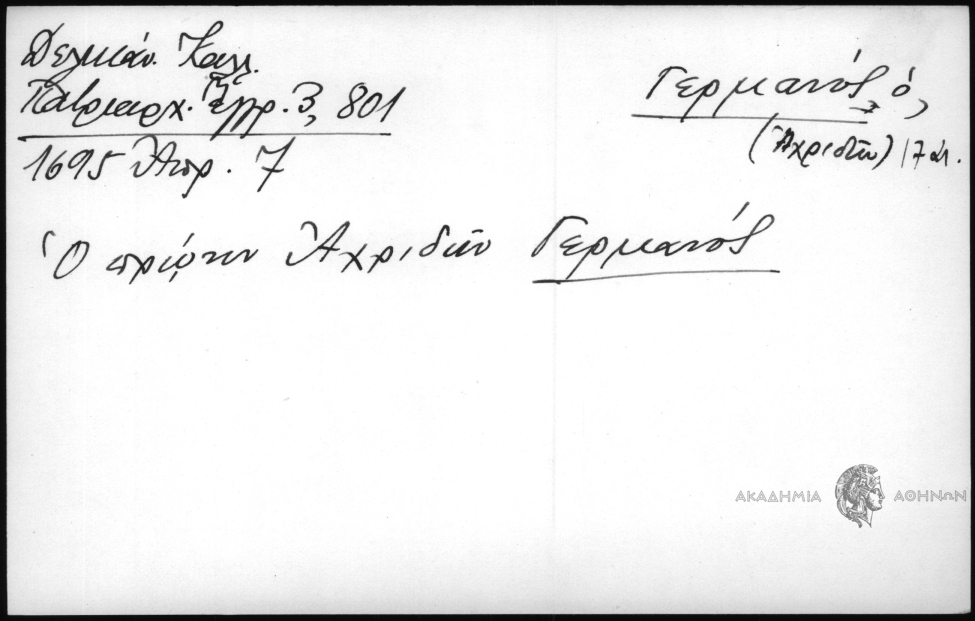 Δελικάν. Καλλ.
Πατριαρχ. Ἔγγρ. 3, 801
1695 Ἀπρ. 7
Γερμανός, ὁ,
(Ἀχριδῶν) 17 αἰ.
Ὁ πρώην Ἀχριδῶν Γερμανός
ΑΚΑΔΗΜΙΑ ΑΘΗΝΩΝ